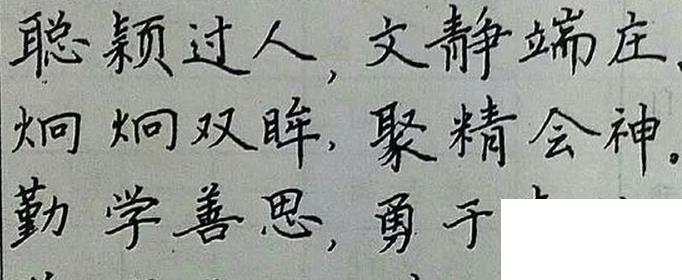 聪颖过人,文静端庄,
炯炯双眸,聚精会神。
勤学善思,勇于